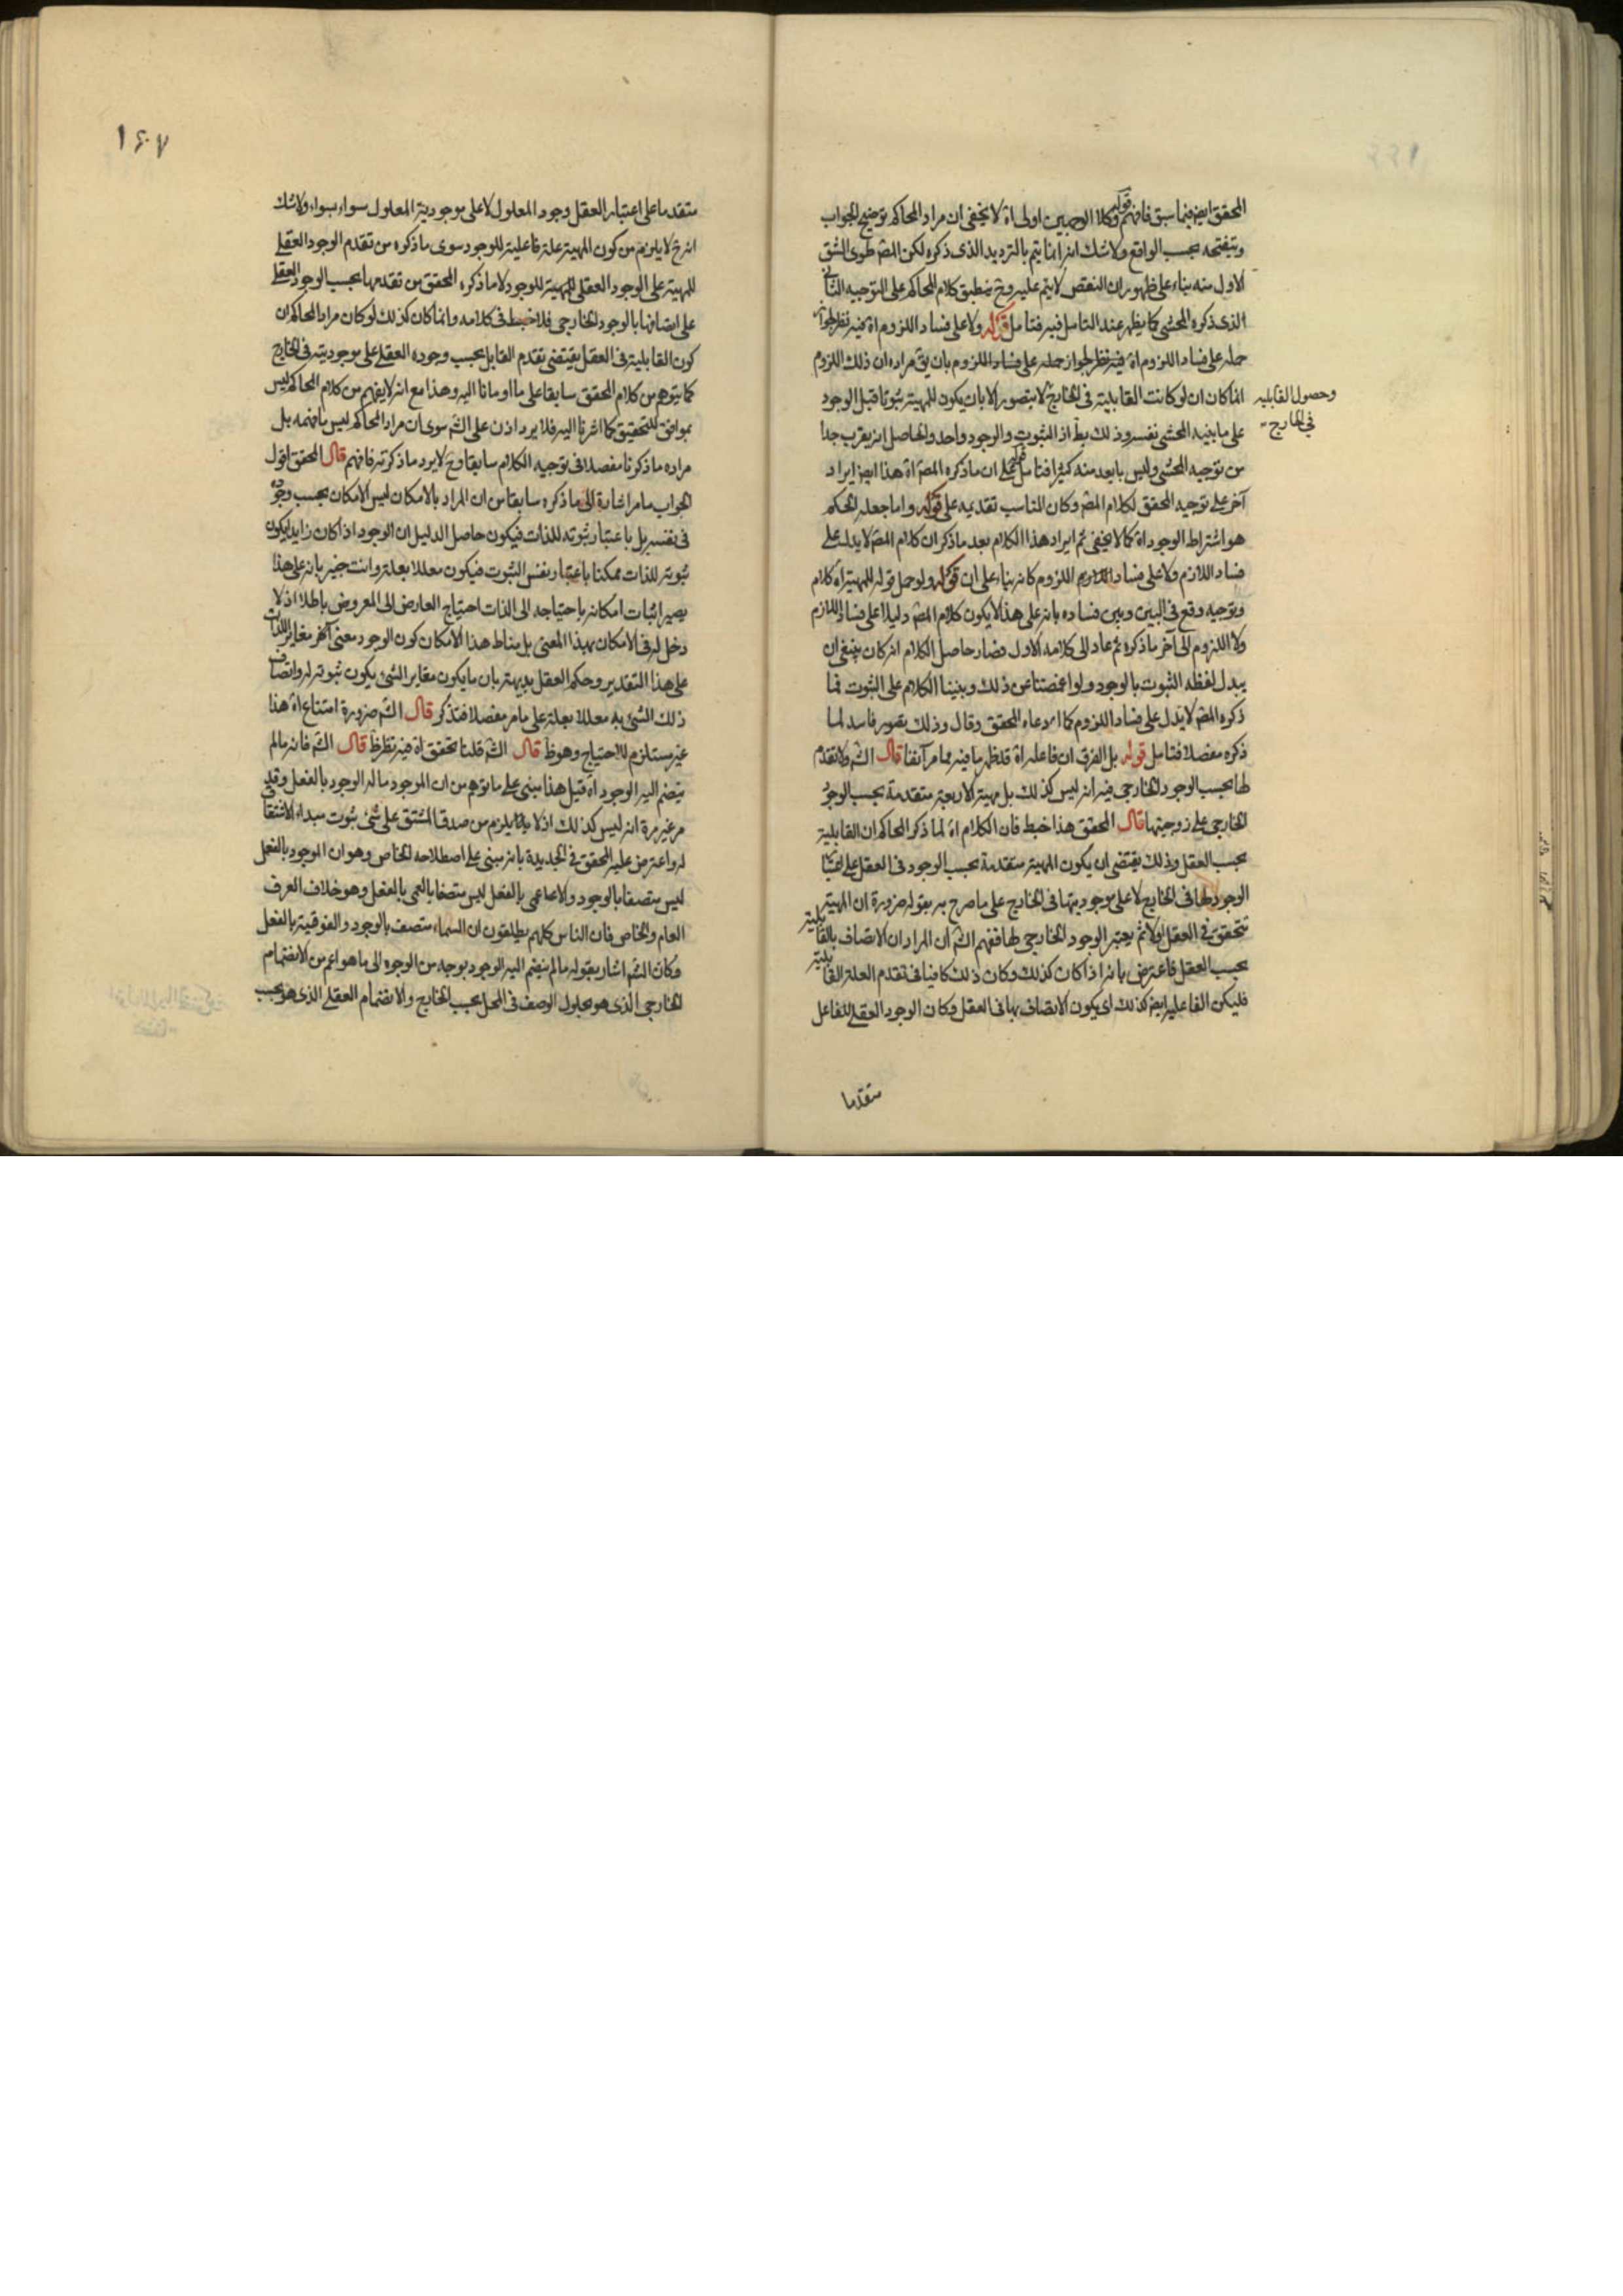 المحقق ايضا فيما سبق فافهم قوله وكلا الوجهين اولى اه لا يخفى ان مراد المحاكم توضيح الجواب
وتنقيحه بحسب الواقع ولا شك انه انما يتم بالترديد الذى ذكره لكن المص طوى الشق
الاول منه بناء على ظهور ان النقض لا يتم عليه وح ينطبق كلام المحاكم على التوجيه الثانى
الذى ذكره المحشى كما يظهر عند التامل فيه فتامل قوله ولا على فساد اللزوم اه فيه نظر لجواز
حمله على فساد اللزوم اه فيه نظر لجواز حمله على فساد اللزوم بان يق مراده ان ذلك اللزوم
وحصول القابلية
في الخارج
انما كان ان لو كانت القابلية فى الخارج لا يتصور الا بان يكون للمهية ثبوتا قبل الوجود
على ما يفيد المحشى نفسه وذلك بط اذ الثبوت والوجود واحد والحاصل انه يقرب جدا
من توجيه المحشى وليس بابعد منه كثيرا فتامل قوله على ان ما ذكره المص اه هذا ايضا ايراد
آخر على توجيه المحقق لكلام المص وكان المناسب تقديمه على قوله واما جعله الحكم
هو اشتراط الوجود اه كما لا يخفى ثم ايراد هذا الكلام بعد ما ذكر ان كلام المص لا يدل على
فساد اللازم ولا على فساد اللزوم كانه بناء على ان قوله ولو حمل قوله للمهية اه كلام
وتوجيه وقع فى البين وبين فساده بانه على هذا لا يكون كلام المص دليلا على فساد اللازم
ولا اللزوم الى آخر ما ذكره ثم عاد الى كلامه الاول فصار حاصل الكلام انه كان ينبغى ان
يبدل لفظه الثبوت بالوجود ولو اغمضنا عن ذلك وبنينا الكلام على الثبوت فما
ذكره المص لا يدل على فساد اللزوم كما ادعاه المحقق وقال وذلك تصور فاسد لما
ذكره مفصلا فتامل قوله بل الفرق ان فاعله اه قد ظهر ما فيه مما مر آنفا قال الش ولا تقدم
لها بحسب الوجود الخارجى فيه انه ليس كذلك بل مهية الاربعة متقدمة بحسب الوجود
الخارجى على زوجيتها قال المحقق هذا خبط فان الكلام اه لما ذكر المحاكم ان القابلية
بحسب العقل وذلك يقتضى ان يكون المهية متقدمة بحسب الوجود فى العقل على اعتبار
الوجود لها فى الخارج لا على موجوديتها فى الخارج على ما صرح به بقوله ضرورة ان المهية
تتحقق فى العقل اولا ثم يعتبر الوجود الخارجى لها ففهم الش ان المراد ان الاتصاف بالقابلية
بحسب العقل فاعترض بانه اذا كان كذلك وكان ذلك كافيا فى تقدم العلة القابلية
فليكن الفاعلية ايضا كذلك اى يكون الاتصاف بها فى العقل وكان الوجود العقلى للفاعل
متقدما
١٤٠٧
متقدما على اعتبار العقل وجود المعلول لا على موجودية المعلول سواء بسواء ولا شك
انه ح لا يلزم من كون المهية علة فاعلية للوجود سوى ما ذكره من تقدم الوجود العقلى
للمهية على الوجود العقلى للمهية للوجود لا ما ذكره المحقق من تقدمها بحسب الوجود العقلى
على اتصافها بالوجود الخارجى فلا خبط فى كلامه وانما كان كذلك لو كان مراد المحاكم ان
كون القابلية فى العقل يقتضى تقدم القابل بحسب وجوده العقلى على موجوديته فى الخارج
كما يتوهم من كلام المحقق سابقا على ما اومانا اليه وهذا مع انه لا يفهم من كلام المحاكم ليس
بموافق للتحقيق كما اشرنا اليه فلا يرد اذن على الش سوى ان مراد المحاكم ليس ما فهمه بل
مراده ما ذكرنا مفصلا فى توجيه الكلام سابقا وح لا يرد ما ذكرته فافهم قال المحقق اقول
الجواب ما مر اشارة الى ما ذكره سابقا من ان المراد بالامكان ليس الامكان بحسب وجوده
فى نفسه بل باعتبار ثبوته للذات فيكون حاصل الدليل ان الوجود اذا كان زايدا يكون
ثبوته للذات ممكنا باعتبار نفس الثبوت فيكون معللا بعلة وانت خبير بانه على هذا
يصير اثبات امكانه باحتياجه الى الذات احتياج العارض الى المعروض باطلا اذ لا
دخل له فى الامكان بهذا المعنى بل مناط هذا الامكان كون الوجود معنى آخر مغاير للذات
على هذا التقدير وحكم العقل بديهة بان ما يكون مغاير الشئ يكون ثبوته له واتصاف
ذلك الشئ به معللا بعلة على ما مر مفصلا فتذكر قال الش ضرورة امتناع اه هذا
غير مستلزم للاحتياج وهو ظ قال الش قلنا تحقق اه فيه نظر ظ قال الش فانه ما لم
ينضم اليه الوجود اه قيل هذا مبنى على ما توهم من ان الموجود ما له الوجود بالفعل وقد
مر غير مرة انه ليس كذلك اذ لا يلزم من صدق المشتق على شئ ثبوت مبداء الاشتقاق
له واعترض عليه المحقق فى الجديدة بانه مبنى على اصطلاحه الخاص وهو ان الموجود بالفعل
ليس متصفا بالوجود والاعمى بالفعل ليس متصفا بالعمى بالفعل وهو خلاف العرف
العام والخاص فان الناس كلهم يطلقون ان السماء متصف بالوجود والفوقية بالفعل
وكان الش اشار بقوله ما لم ينضم اليه الوجود بوجه من الوجوه الى ما هو اعم من الانضمام
الخارجى الذى هو بحلول الوصف فى المحل بحسب الخارج والانضمام العقلى الذى هو بحسب